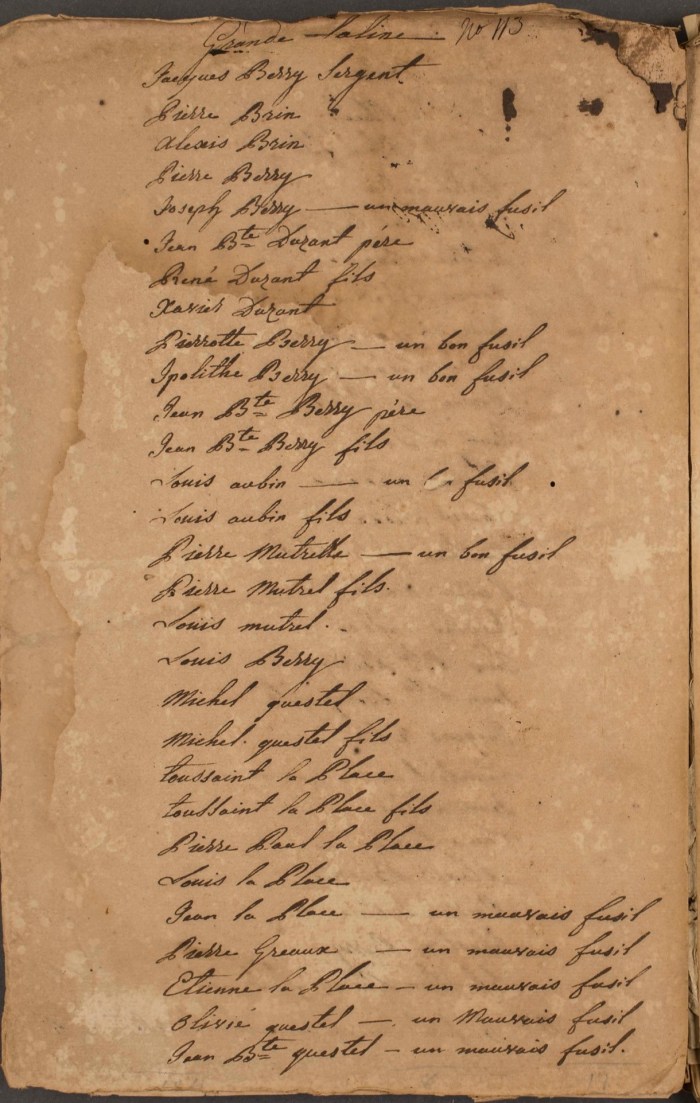 Grande Saline. No 113
Jacques Berry Sergent
Pierre Brin
Alexis Brin
Pierre Berry
Joseph Berry — un mauvais fusil
Jean Bte Duzant pére
René Duzant fils
Xavier Duzant
Pierrotte Berry — un bon fusil
Ipolithe Berry — un bon fusil
Jean Bte Berry pére
Jean Bte Berry fils
Louis aubin — un fusil
Louis aubin fils
Pierre Mutrelle — un bon fusil
Pierre Mutrel fils.
Louis mutrel.
Louis Berry
Michel questel
Michel. questel fils
toussaint la Place
toussaint la Place fils
Pierre Paul la Place
Louis la Place
Jean la Place — un mauvais fusil
Pierre Greaux — un mauvais fusil
Etienne la Place — un mauvais fusil
Olivié questel — un Mauvais fusil
Jean Bte questel — un mauvais fusil.